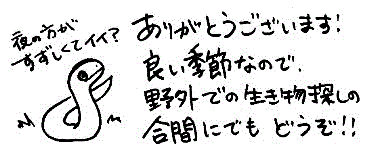 夜の方が
すずしくてイイ?
ありがとうございます!
良い季節なので、
野外での生き物探しの
合間にでも どうぞ!!